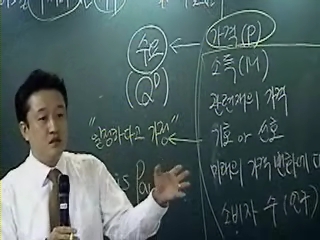 가격(P)
수요
(Q^D)
소득(M)
관련재의 가격
"일정하다고 가정"
기호 or 선호
미래의 가격변화에 대
소비자 수(인구)